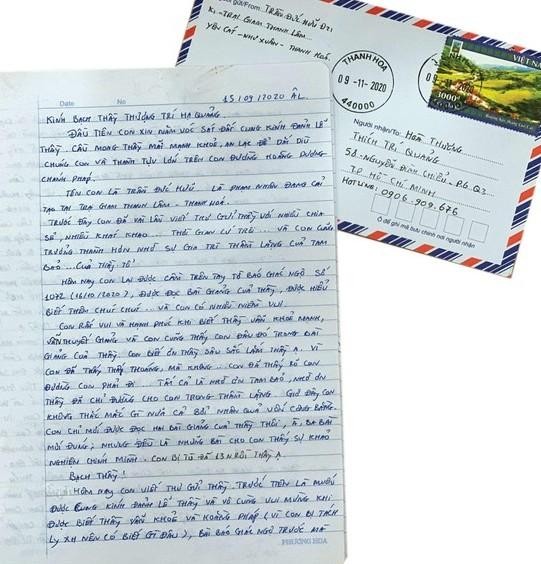 Người gửi/From: TRẦN ĐỨC HỮU Đ21
K1 - TRẠI GIAM THANH LÂM -
YÊN CÁT - NHƯ XUÂN - THANH HOÁ.
THANH HOA
09-11-2020
440000
VIỆT NA
3000đ
Người nhận/To: HOÀ THƯỢNG
THÍCH TRÍ QUẢNG
58 - NGUYỄN ĐÌNH CHIỂU - P6 Q3
TP HỒ CHÍ MINH
HOTLINE: 0906.909.676
Ô để ghi mã bưu chính nơi người nhận
Date No
15/09/2020 ÂL
KÍNH BẠCH THẦY THƯỢNG TRÍ HẠ QUẢNG
ĐẦU TIÊN CON XIN NĂM VÓC SÁT ĐẤT CUNG KÍNH ĐẢNH LỄ
THẦY. CẦU MONG THẦY MÃI MẠNH KHOẺ, AN LẠC ĐỂ DẪN DẮT
CHÚNG CON VÀ THÀNH TỰU LỚN TRÊN CON ĐƯỜNG HOẰNG DƯƠNG
CHÁNH PHÁP.
TÊN CON LÀ TRẦN ĐỨC HỮU. LÀ PHẠM NHÂN ĐANG CẢI
TẠO TẠI TRẠI GIAM THANH LÂM - THANH HOÁ.
TRƯỚC ĐÂY CON ĐÃ VÀI LẦN VIẾT THƯ GỬI THẦY VỚI NHIỀU CHIA
SẺ, NHIỀU KHÁT KHAO... THỜI GIAN CỨ TRÔI... VÀ CON CŨNG
TRƯỞNG THÀNH HƠN NHỜ SỰ GIA TRÌ THẦM LẶNG CỦA TAM
BẢO... CỦA THẦY TỔ!
HÔM NAY CON LẠI ĐƯỢC CẦM TRÊN TAY TỜ BÁO GIÁC NGỘ SỐ
1072 (16/10/2020), ĐƯỢC ĐỌC BÀI GIẢNG CỦA THẦY, ĐƯỢC HIỂU
BIẾT THÊN CHÚT CHÚT... VÀ CON CÓ NHIỀU NIỀM VUI.
CON RẤT VUI VÀ HẠNH PHÚC KHI BIẾT THẦY VẪN KHOẺ MẠNH,
VẪN THUYẾT GIẢNG VÀ CON CŨNG THẤY CON ĐÂU ĐÓ TRONG BÀI
GIẢNG CỦA THẦY. CON BIẾT ƠN THẦY SÂU SẮC LẮM THẦY Ạ. VÌ
CON ĐÃ THẤY THẤP THOÁNG, MÀ KHÔNG... CON ĐÃ THẤY RÕ CON
ĐƯỜNG CON PHẢI ĐI... TẤT CẢ LÀ NHỜ ƠN TAM BẢO, NHỜ ƠN
THẦY ĐÃ CHỈ ĐƯỜNG CHO CON TRONG THẦM LẶNG. GIỜ ĐÂY CON
KHÔNG THẮC MẮC GÌ NỮA CẢ BỞI NHÂN QUẢ VỐN CÔNG BẰNG.
CON CHỈ MỚI ĐƯỢC ĐỌC HAI BÀI GIẢNG CỦA THẦY THÔI, À, BA BÀI
MỚI ĐÚNG; NHƯNG ĐỀU LÀ NHỮNG BÀI CHO CON THẤY SỰ KHẢO
NGHIỆM CHÍNH MÌNH. CON BỊ TÙ ĐÃ 13 N RỒI THẦY Ạ.
BẠCH THẦY!
HÔM NAY CON VIẾT THƯ GỬI THẦY. TRƯỚC TIÊN LÀ MUỐN
ĐƯỢC CUNG KÍNH ĐẢNH LỄ THẦY VÀ VÔ CÙNG VUI MỪNG KHI
ĐƯỢC BIẾT THẦY VẪN KHOẺ VÀ HOẰNG PHÁP (VÌ CON BỊ TÁCH
LY XH NÊN CÓ BIẾT GÌ ĐÂU), BÀI BÁO GIÁC NGỘ TRƯỚC MÀ
PHƯƠNG HOA